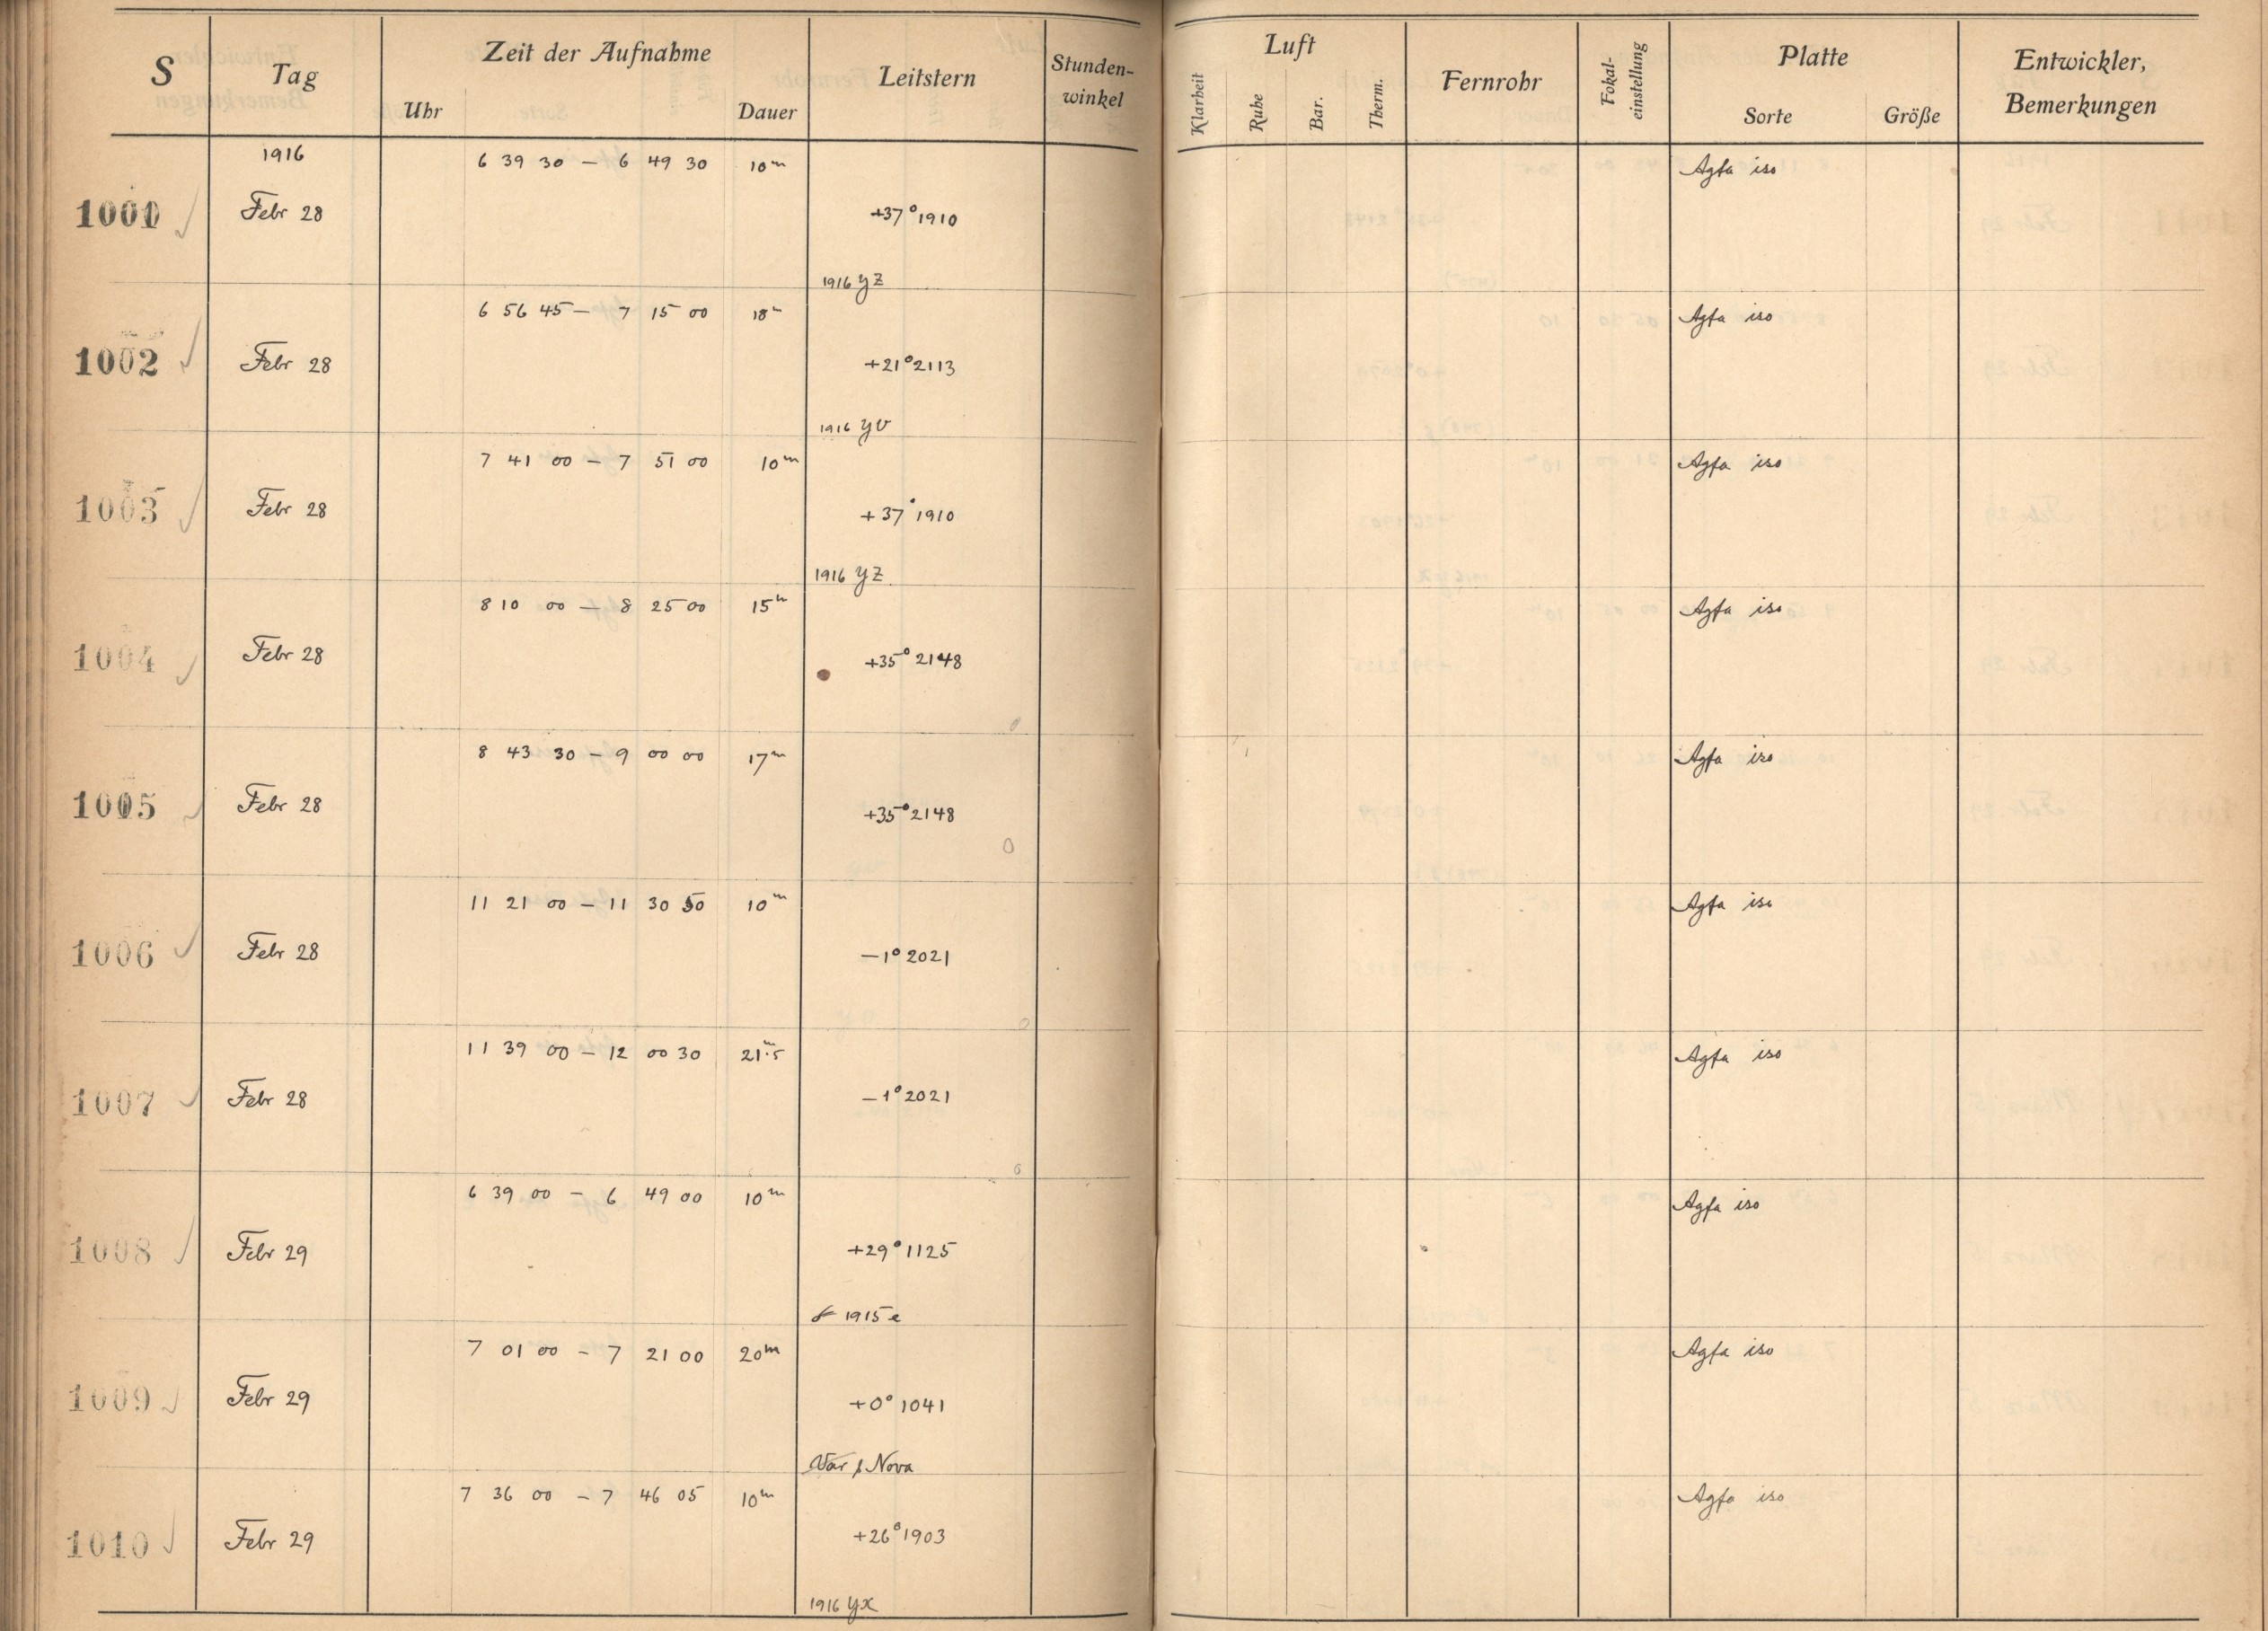 S Tag Zeit der Aufnahme Leitstern Stunden-winkel Luft Fernrohr Fokal-einstellung Platte Entwickler, Bemerkungen
Uhr Dauer Klarheit Ruhe Bar. Therm. Sorte Größe
1916 6 39 30 – 6 49 30 10m Agfa iso
1001 Febr 28 +37° 1910
1916 YZ
6 56 45 – 7 15 00 18m Agfa iso
1002 Febr 28 +21° 2113
1916 YV
7 41 00 – 7 51 00 10m Agfa iso
1003 Febr 28 +37° 1910
1916 YZ
8 10 00 – 8 25 00 15m Agfa iso
1004 Febr 28 +35° 2148
8 43 30 – 9 00 00 17m Agfa iso
1005 Febr 28 +35° 2148
11 21 00 – 11 30 50 10m Agfa iso
1006 Febr 28 –1° 2021
11 39 00 – 12 00 30 21m.5 Agfa iso
1007 Febr 28 –1° 2021
6 39 00 – 6 49 00 10m Agfa iso
1008 Febr 29 +29° 1125
1915 e
7 01 00 – 7 21 00 20m Agfa iso
1009 Febr 29 +0° 1041
Var Nova
7 36 00 – 7 46 05 10m Agfa iso
1010 Febr 29 +26° 1903
1916 YX